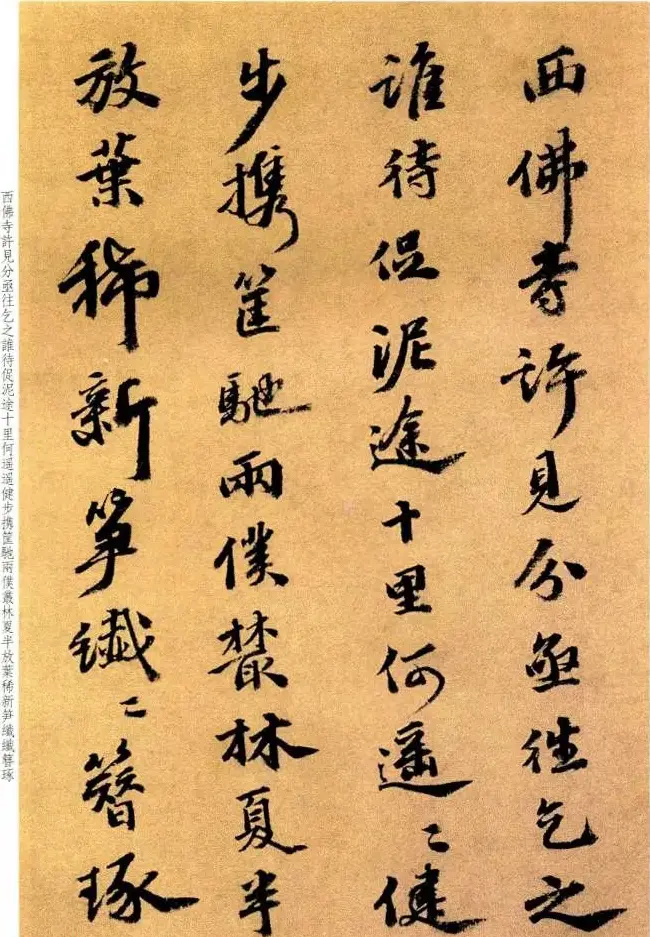 西佛寺許見分亟往乞之
誰待促泥途十里何遥〻健
步携筐馳兩僕叢林夏半
放葉稀新笋纖〻簪琢
西佛寺許見分亟往乞之誰待促泥途十里何遥遥健步携筐馳兩僕叢林夏半放葉稀新笋纖纖簪琢